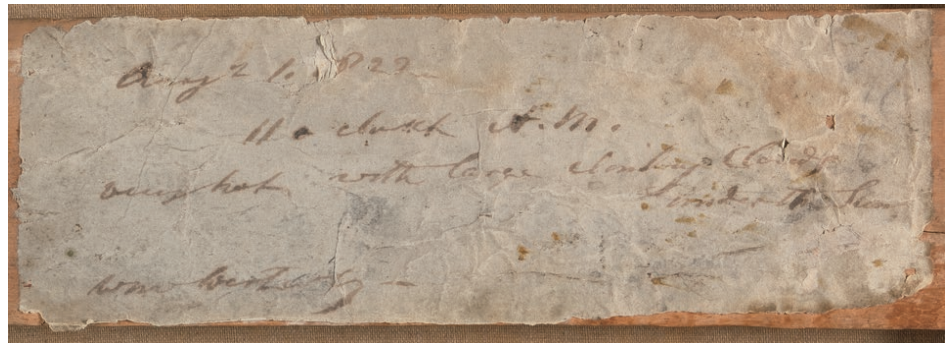 Augt 1. 1822
11 o clock A.M.
very hot with large climbing Clouds
under the Sun
wind westerly